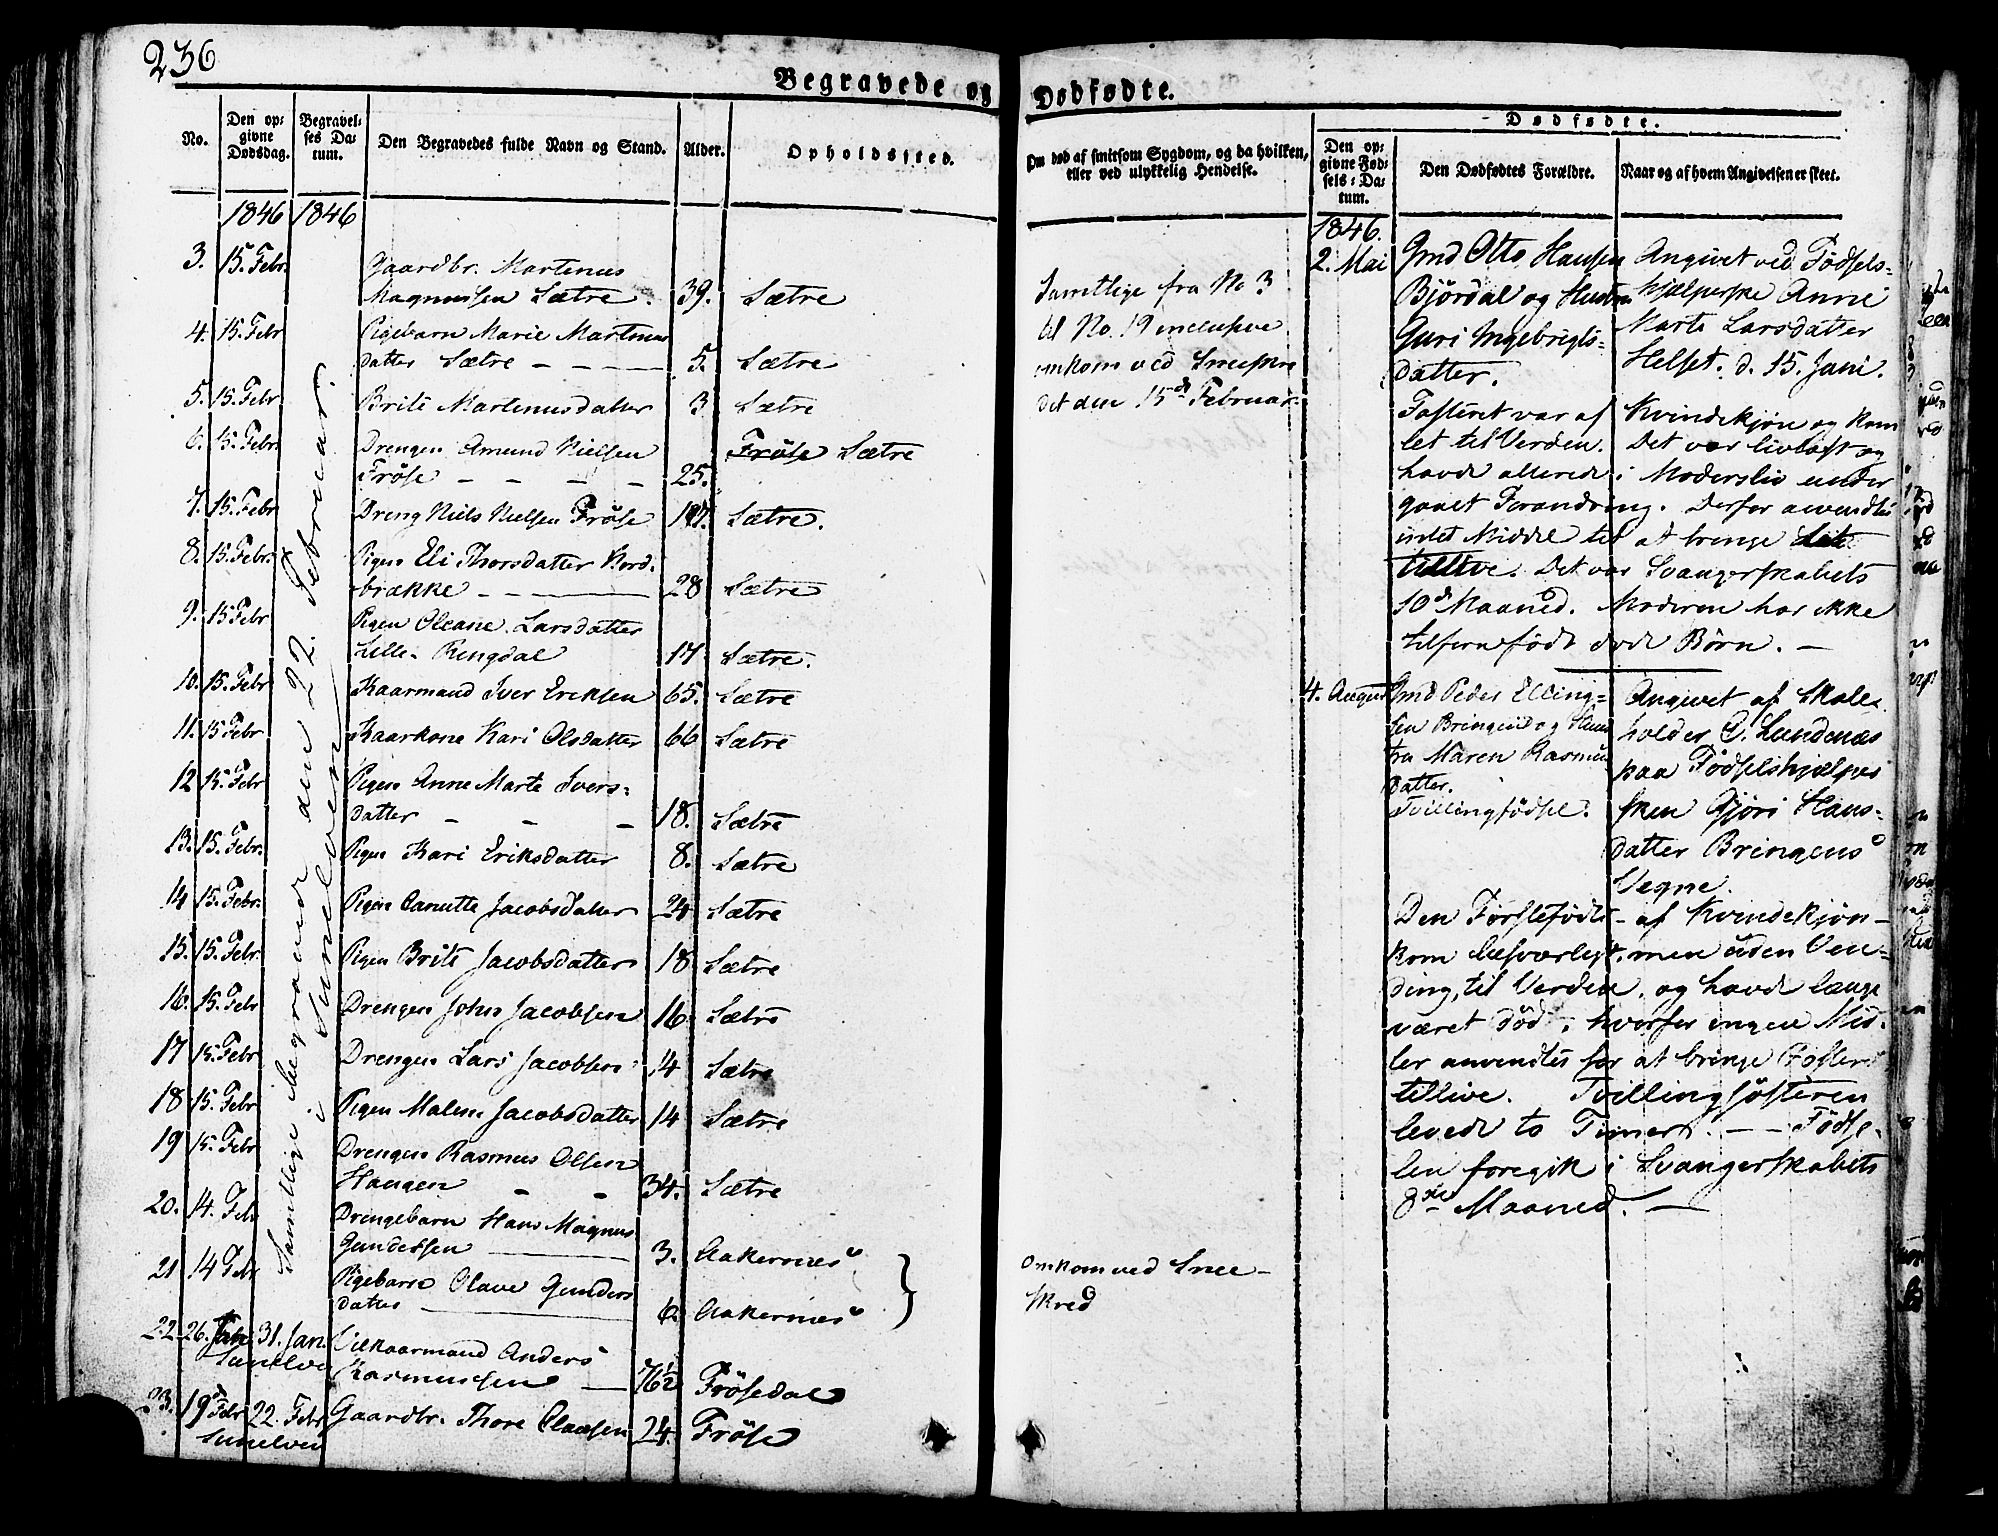 236
Begravede og Dødfødte.
No.
Den opgivne Dødsdag.
Begravelses Datum.
Den Begravedes fulde Navn og Stand.
Alder.
Opholdssted.
Om død af smitsom Sygdom, og da hvilken,
eller ved ulykkelig Hendelse.
Dødfødte.
Den opgivne Fødsels-Datum.
Den Dødfødtes Forældre.
Naar og af hvem Angivelsen er skeet.
1846 1846
3. 15. Febr. Gaardbr. Martinus
Magnussen Sætre. 39. Sætre
4. 15. Febr Pigebarn Marie Martinus
datter Sætre - - - 5. Sætre
5. 15. Febr Brite Martinusdatter 3 Sætre
6. 15. Febr. Drengen Amund Nielsen Fröse Sætre
Fröse - - - - 25.
7. 15. Febr Dreng Niels Nielsen Fröse 17. Sætre.
8. 15. Febr. Pigen Eli Thorsdatter Nord-
brække - - - 28 Sætre
9. 15 Febr Pigen Oleane Larsdatter
Lille-Ringdal 17 Sætre.
10. 15. Febr Kaarmand Iver Eriksen 65. Sætre
11. 15 Febr Kaarkone Kari Olsdatter 66 Sætre
12 15. Febr Pigen Anne Marte Ivers-
datter - - - 18. Sætre
13. 15. Febr. Pigen Kari Eriksdatter 8. Sætre
14 15. Febr. Pigen Canutte Jacobsdatter 24 Sætre
15. 15. Febr. Pigen Brite Jacobsdatter 18 Sætre
16. 15. Febr Drengen John Jacobsen 16. Sætre
17 15. Febr Drengen Lars Jacobsen 14 Sætre
18 15. Febr Pigen Malene Jacobsdatter 14 Sætre
19 15. Febr Drengen Rasmus Olsen
Haugen - - 34. Sætre
20. 14. Feb Drengebarn Hans Magnus
Gundersen 3. Aakernes
21 14 Febr Pigebarn Olave Gunders
datter 6. Aakernes
22 26. Jan 31. Jan. Vilkaarmand Anders
Sunelven Rasmussen 76 1/2 Frösedal
23. 19 Febr 22. Febr Gaardbr. Thore Claasen 24. Fröse
Sunelven
Samtlige begravede den 22. Februar
i Sunelven
Samtlige fra No 3
til No. 19 inclusive
omkom ved Sneeskre
det den 15de Februar.
Omkom ved Snee-
skred
1846.
2. Mai Gmd Otto Hansen
Bjørdal og Hustru
Guri Ingebrigts-
datter.
Angivet ved Fødsels-
hjælperske Anne
Marte Larsdatter
Helset. d. 15. Juni.
Fosteret var af Kvindekjøn og kom
let til Verden. Det var livløst og
havde allerede i Modersliv under
gaaet Forandring. Derfor anvendtes
intet Middel til at bringe Lik
tillive. Det var Svangerskabets
10de Maaned. Moderen har ikke
tilforn født døde Børn. -
4. August Gmd Peder Elling-
sen Bringen og Hus
tru Maren Rasmus
datter.
Tvillingfödsel.
Angivet af Skole-
holder C. Lundenæs
paa Fødselshjælper
sken Gjöri Hans-
datter Bringens
Vegne.
Den Førstefødte - af Kvindekjøn -
kom besværligt, men uden Ven-
ding, til Verden, og havde længe
været død, hvorfor ingen Mid-
ler anvendtes for at bringe Fosteret
tillive. Tvillingsøsteren
levede to Timer. - - Fødse-
len foregik i Svangerskabets
8de Maaned. -